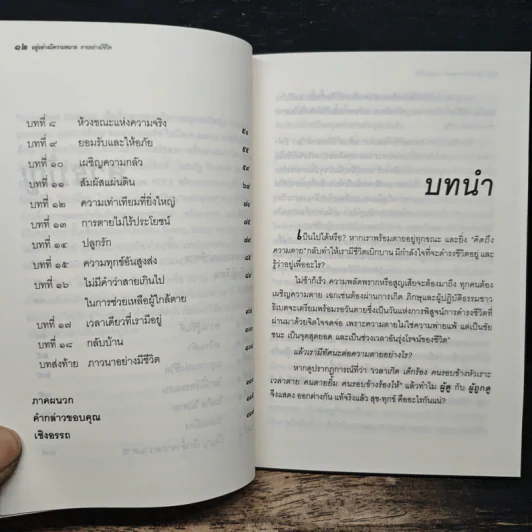 ๑๒ อยู่อย่างมีความหมาย ตายอย่างมีชีวิต
บทที่ ๘ ห้วงขณะแห่งความจริง
บทที่ ๙ ยอมรับและให้อภัย
บทที่ ๑๐ เผชิญความกลัว
บทที่ ๑๑ สัมผัสแผ่นดิน
บทที่ ๑๒ ความเท่าเทียมที่ยิ่งใหญ่
บทที่ ๑๓ การตายไม่ไร้ประโยชน์
บทที่ ๑๔ ปลูกรัก
บทที่ ๑๕ ความทุกข์อันสูงส่ง
บทที่ ๑๖ ไม่มีคำว่าสายเกินไป
ในการช่วยเหลือผู้ใกล้ตาย
บทที่ ๑๗ เวลาเดียวที่เรามีอยู่
บทที่ ๑๘ กลับบ้าน
บทส่งท้าย ภาวนาอย่างมีชีวิต
ภาคผนวก
คำกล่าวขอบคุณ
เชิงอรรถ
บทนำ
เป็นไปได้หรือ? หากเราพร้อมตายอยู่ทุกขณะ และยิ่ง "คิดถึง
ความตาย" กลับทำให้เรามีชีวิตเบิกบาน มีกำลังใจที่จะดำรงชีวิตอยู่ และ
รู้ว่าอยู่เพื่ออะไร?
ไม่ช้าก็เร็ว ความพลัดพรากหรือสูญเสียจะต้องมาถึง ทุกคนต้อง
เผชิญความตาย เฉกเช่นต้องผ่านการเกิด ภิกษุและผู้ปฏิบัติธรรมชาว
ธิเบตจะเตรียมพร้อมรอวันตายซึ่งเป็นวันแห่งการพิสูจน์การดำรงชีวิตที่
ผ่านมาด้วยจิตใจจดจ่อ เพราะความตายไม่ใช่ความพ่ายแพ้ แต่เป็นชัย
ชนะ เป็นจุดสุดยอด และเป็นช่วงเวลาอันรุ่งโรจน์ของชีวิต"
แล้วเรามีทัศนะต่อความตายอย่างไร?
หากดูปรากฏการณ์ที่ว่า "เวลาเกิด เด็กร้อง คนรอบข้างหัวเราะ
เวลาตาย คนตายยิ้ม คนรอบข้างร้องไห้" แล้วทำไม ผู้ดู กับ ผู้ถูกดู
จึงแสดง ออกต่างกัน แท้จริงแล้ว สุข-ทุกข์ คืออะไรกันแน่?